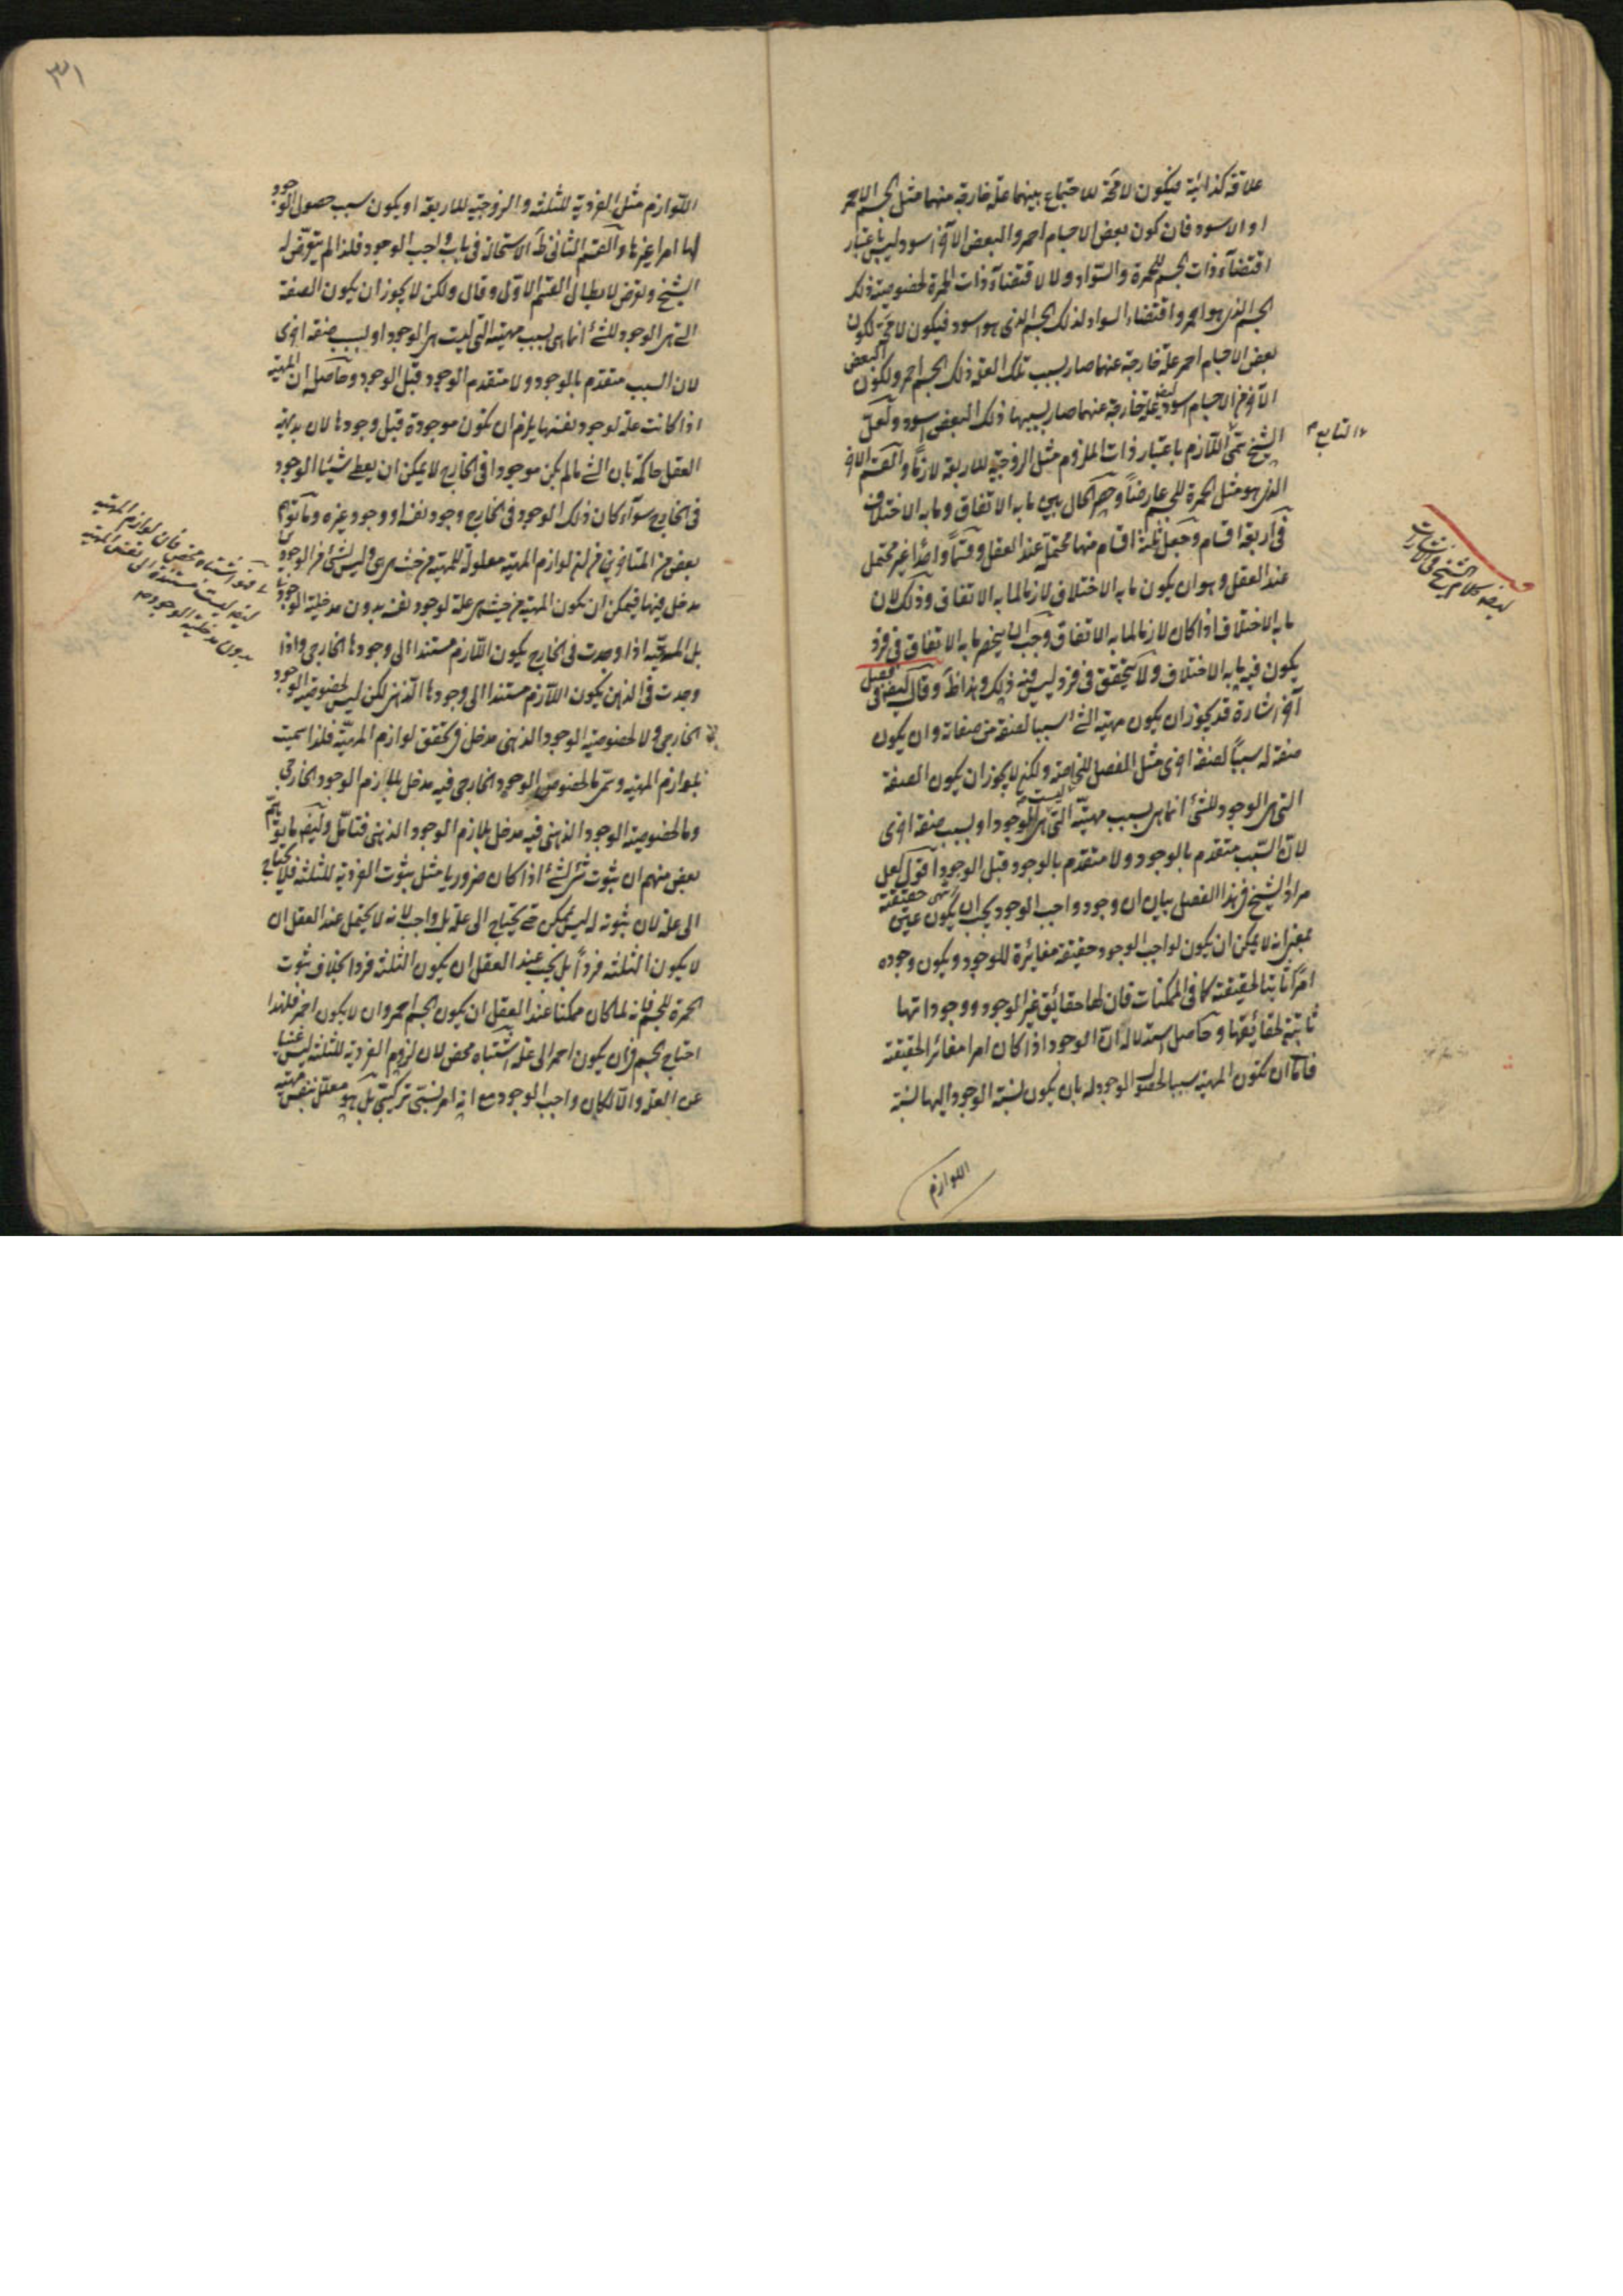 علاقة كذائية فيكون لا محة للاجتماع بينهما علة خارجة منهما مثل الجسم الاحمر
او الاسود فان كون بعض الاجسام احمر والبعض الآخر اسود ليس باعتبار
اقتضآء ذات الجسم للحمرة والسواد ولا لاقتضآء ذات الحمرة لخصوصية ذلك
الجسم الذى هو احمر واقتضاء السواد لذلك الجسم الذى هو اسود فيكون لا محة لكون
بعض الاجسام احمر علة خارجة عنهما صار بسبب تلك العلة ذلك الجسم احمر ولكون البعض
الآخر من الاجسام اسود ايضا علة خارجة عنهما صار بسببها ذلك البعض اسود ولعل
الشيخ سمى اللازم باعتبار ذات الملزوم مثل الزوجية للاربعة لازماً والقسم الآخر
الذى هو مثل الحمرة للجسم عارضاً وحصر الحال بين ما به الاتفاق وما به الاختلاف
فى اربعة اقسام وجعل ثلثة اقسام منها محتملة عند العقل وقسماً واحداً غير محتمل
عند العقل وهو ان يكون ما به الاختلاف لازما لما به الاتفاق وذلك لان
ما به الاختلاف اذا كان لازما لما به الاتفاق وجب ان ينحصر ما به الاتفاق فى فرد
يكون فيه ما به الاختلاف ولا يتحقق فى فرد ليس فيه ذلك وهذا ظ وقال ايضا فى فصل
آخر اشارة قد يجوز ان يكون مهية الشئ سببا لصفة من صفاته وان يكون
صفة له سبباً لصفة اخرى مثل الفصل للخاصة ولكن لا يجوز ان يكون الصفة
التى هى الوجود للشئ انما هى بسبب مهيته التى ليست هى الوجود او بسبب صفة اخرى
لان السبب متقدم بالوجود ولا متقدم بالوجود قبل الوجود اقول لعل
مراد الشيخ فى هذا الفصل بيان ان وجود واجب الوجود يجب ان يكون عين حقيقته
بمعنى انه لا يمكن ان يكون لواجب الوجود حقيقة مغايرة للوجود ويكون وجوده
امراً ثابتا لحقيقته كما فى الممكنات فان لها حقائق غير الوجود ووجوداتها
ثابتة لحقائقها وحاصل استدلاله ان الوجود اذا كان امرا مغائرا لحقيقته
فاما ان تكون المهية سببا لحصول الوجود له بان يكون نسبة الوجود اليها نسبة
اللوازم
التابع
ايضا كلام الشيخ فى الاشارات
٣١
اللوازم مثل الفردية للثلثة والزوجية للاربعة او يكون سبب حصول الوجود
لها امرا غيرها والقسم الثانى ظ الاستحالة فى باب واجب الوجود فلذا لم يتعرض له
الشيخ وتعرض لابطال القسم الاول وقال ولكن لا يجوز ان يكون الصفة
التى هى الوجود للشئ انما هى بسبب مهيته التى ليست هى الوجود او بسبب صفة اخرى
لان السبب متقدم بالوجود ولا متقدم بالوجود قبل الوجود وحاصله ان المهية
اذا كانت علة لوجود نفسها يلزم ان تكون موجودة قبل وجودها لان بديهة
العقل حاكمة بان الشئ ما لم يكن موجودا فى الخارج لا يمكن ان يعطى شيئا الوجود
فى الخارج سوآء كان ذلك الوجود فى الخارج وجود نفسه او وجود غيره وما توهم
بعض من المتاخرين من ان لوازم المهية معلولة للمهية من حيث هى هى وليس لشئ من الوجودين
مدخل فيها فيمكن ان يكون المهية من حيث هى علة لوجود نفسه بدون مدخلية الوجود
بل المهية اذا وجدت فى الخارج يكون اللازم مستندا الى وجودها الخارجى واذا
وجدت فى الذهن يكون اللازم مستندا الى وجودها الذهنى لكن ليس لخصوصية الوجود
الخارجى ولا لخصوصية الوجود الذهنى مدخل فى تحقق لوازم المهية فلذا سميت
بلوازم المهية وسمى ما لخصوص الوجود الخارجى فيه مدخل بلازم الوجود الخارجى
وما لخصوصية الوجود الذهنى فيه مدخل بلازم الوجود الذهنى فتامل وايضا ما توهم
بعض منهم ان ثبوت شئ لشئ اذا كان ضروريا مثل ثبوت الفردية للثلثة فلا يحتاج
الى علة لان ثبوته له ليس بممكن حتى يحتاج الى علة بل واجب لانه لا يحتمل عند العقل ان
لا يكون الثلثة فرداً بل يجب عند العقل ان يكون الثلثة فردا بخلاف ثبوت
الحمرة للجسم فانه لما كان ممكنا عند العقل ان يكون الجسم احمر وان لا يكون احمر فلهذا
احتاج الجسم فى ان يكون احمر الى علة اشتباه محض لان لزوم الفردية للثلثة ليس غنيا
عن العلة والا لكان واجب الوجود مع انه امر نسبتى تركيبى بل هو معلل بنفس مهية
فهو اشتباه محض فان لوازم المهية
ايضا ليست مستندة الى نفس المهية
بدون مدخلية الوجود